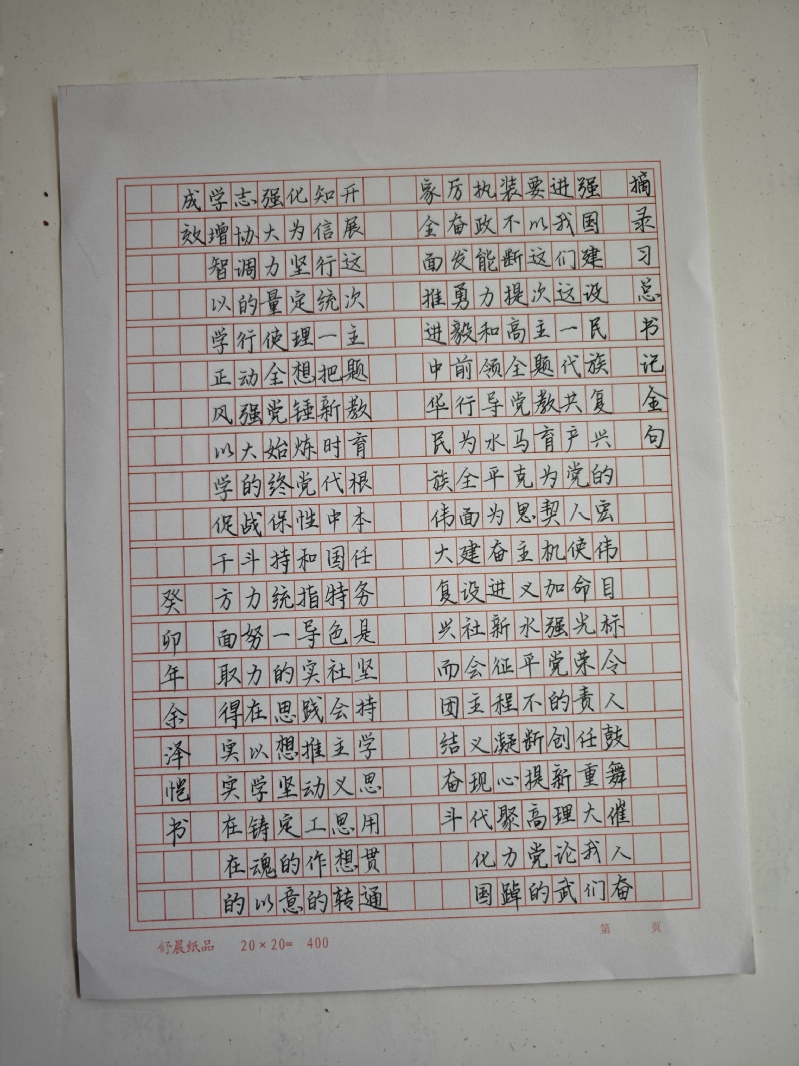 摘录习总书记金句
强国建设民族复兴的宏伟目标令人鼓舞催人奋
进我们这一代共产党人使命光荣责任重大我们
要以这次主题教育为契机加强党的创新理论武
装不断提高全党马克思主义水平不断提高党的
执政能力和领导水平为奋进新征程凝心聚力踔
厉奋发勇毅前行为全面建设社会主义现代化国
家全面推进中华民族伟大复兴而团结奋斗
开展这次主题教育根本任务是坚持学思用贯通
知信行统一把新时代中国特色社会主义思想转
化为坚定理想锤炼党性和指导实践推动工作的
强大力量使全党始终保持统一的思想坚定的意
志协调的行动强大的战斗力努力在以学铸魂以
学增智以学正风以学促干方面取得实实在在的
成效
癸卯年余泽恺书
舒晨纸品 20×20= 400
第 页